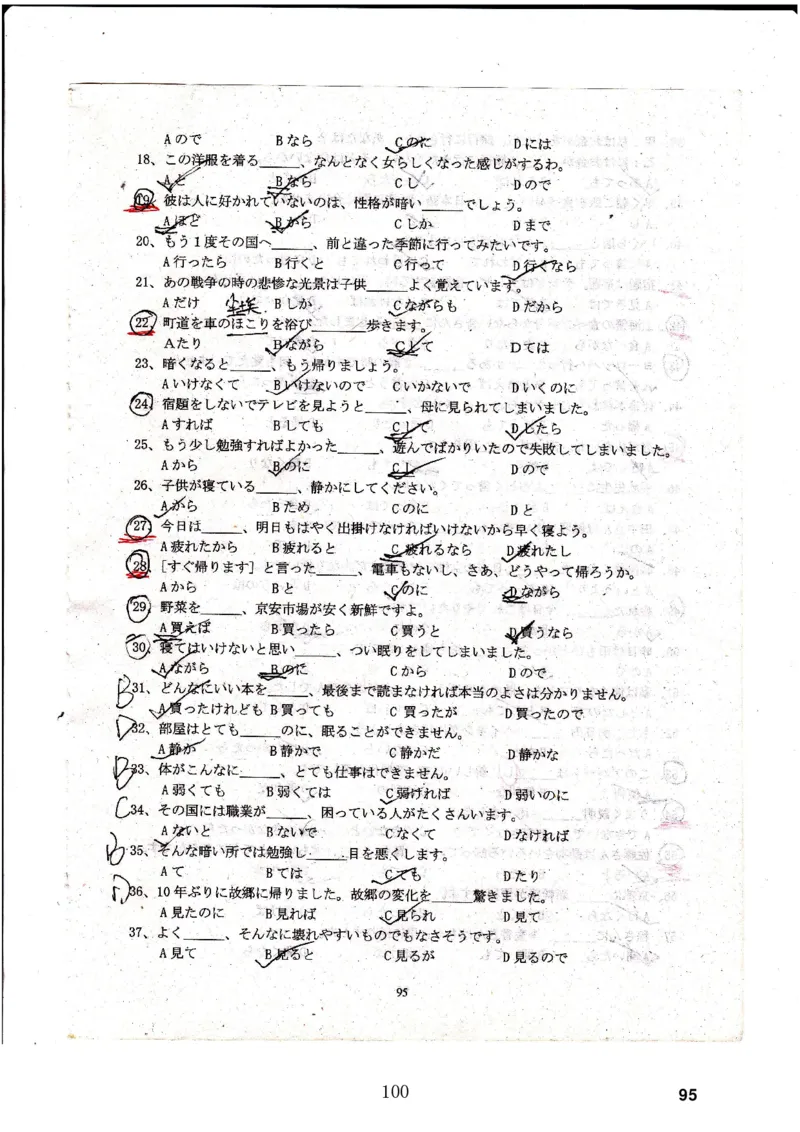 Aので Bなら Cのに Dには
18、この洋服を着る_____、なんとなく女らしくなった感じがするわ。
Aと Bなら Cし Dので
19、彼は人に好かれていないのは、性格が暗い_____でしょう。
Aほど Bから Cしか Dまで
20、もう1度その国へ_____、前と違った季節に行ってみたいです。
A行ったら B行くと C行って D行くなら
21、あの戦争の時の悲惨な光景は子供_____よく覚えています。
Aだけ Bしか Cながらも Dだから
22、町道を車のほこりを浴び_____歩きます。
Aたり Bながら Cして Dては
23、暗くなると_____、もう帰りましょう。
Aいけなくて Bいけないので Cいかないで Dいくのに
24、宿題をしないでテレビを見ようと_____、母に見られてしまいました。
Aすれば Bしても Cして Dしたら
25、もう少し勉強すればよかった_____、遊んでばかりいたので失敗してしまいました。
Aから Bのに Cし Dので
26、子供が寝ている_____、静かにしてください。
Aから Bため Cのに Dと
27、今日は_____、明日もはやく出掛けなければいけないから早く寝よう。
A疲れたから B疲れると C疲れるなら D疲れたし
28、[すぐ帰ります]と言った_____、電車もないし、さあ、どうやって帰ろうか。
Aから Bと Cのに Dながら
29、野菜を_____、京安市場が安く新鮮ですよ。
A買えば B買ったら C買うと D買うなら
30、寝てはいけないと思い_____、つい眠りをしてしまいました。
Aながら Bのに Cから Dので
B 31、どんなにいい本を_____、最後まで読まなければ本当のよさは分かりません。
A買ったけれども B買っても C買ったが D買ったので
D 32、部屋はとても_____のに、眠ることができません。
A静か B静かで C静かだ D静かな
B 33、体がこんなに_____、とても仕事はできません。
A弱くても B弱くては C弱ければ D弱いのに
C 34、その国には職業が_____、困っている人がたくさんいます。
Aないと Bないで Cなくて Dなければ
35、そんな暗い所では勉強し_____目を悪くします。
Aて Bては Cても Dたり
36、10年ぶりに故郷に帰りました。故郷の変化を_____驚きました。
A見たのに B見れば C見られ D見て
37、よく_____、そんなに壊れやすいものでもなさそうです。
A見て B見ると C見るが D見るので
95
100 95